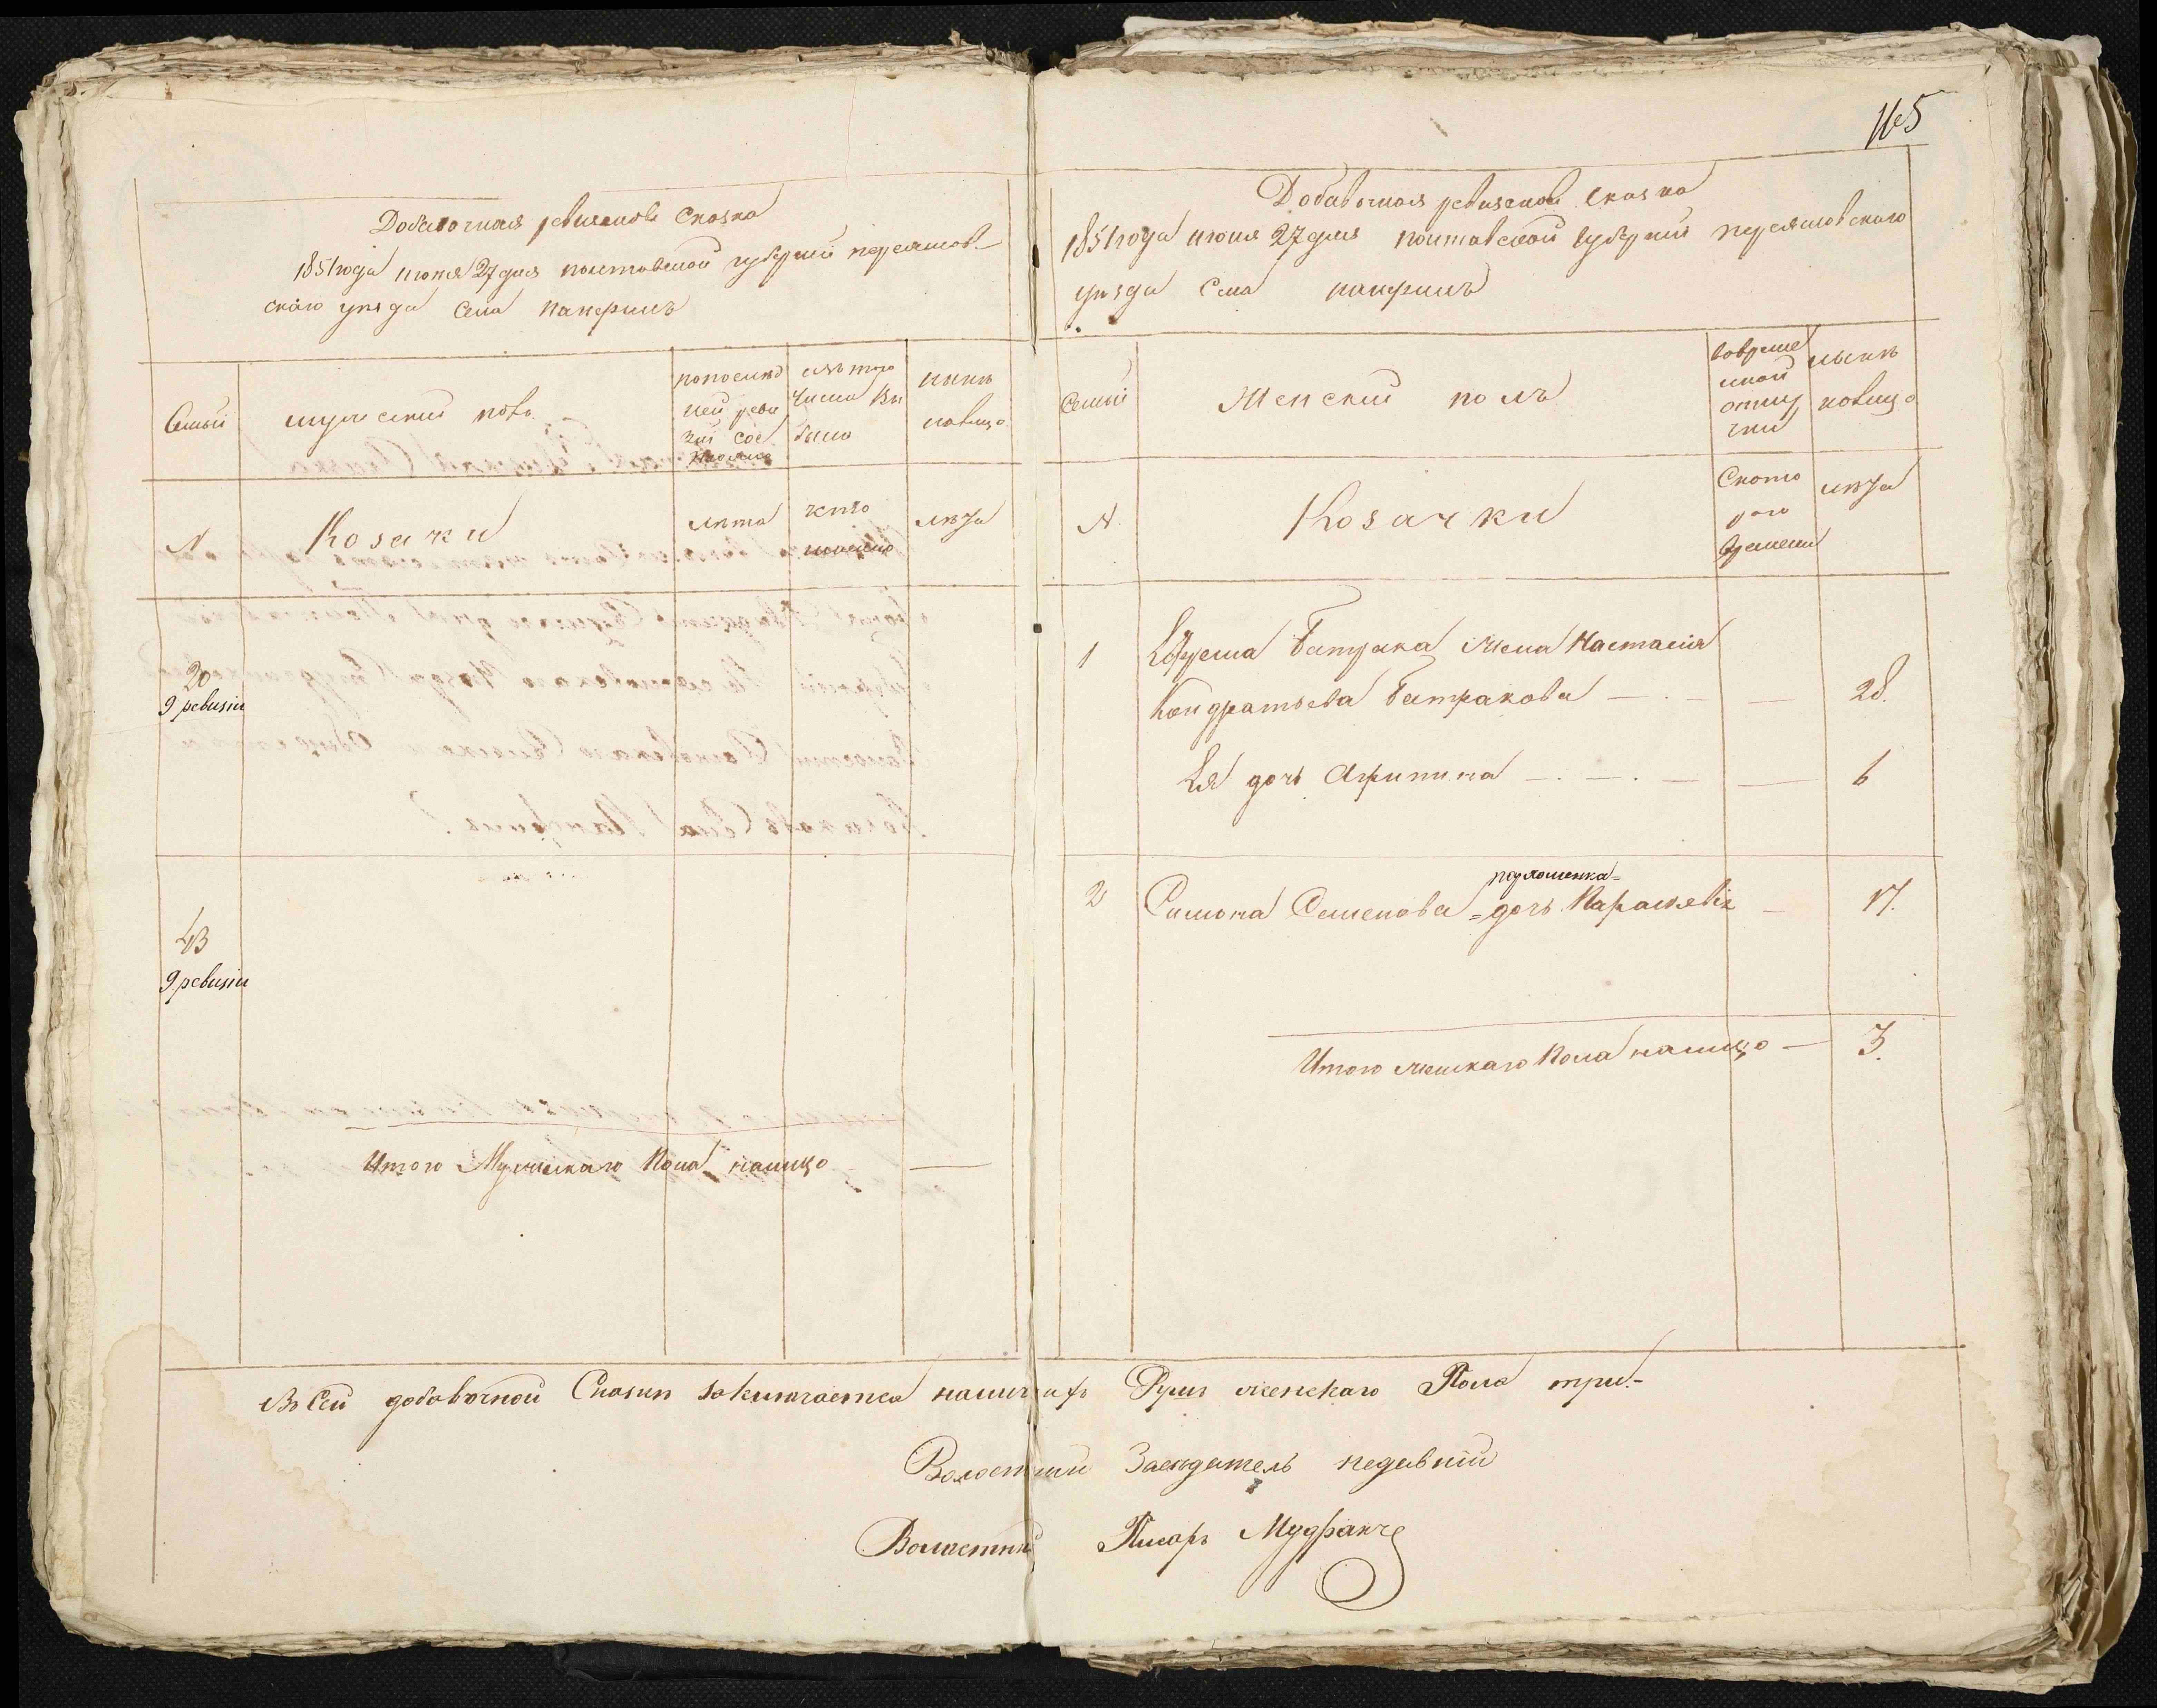 165
Добавочная ревизская Сказка
1851 года июня 27 дня полтавской губернии переяслов-
скаго уезда Села
Семьи
мужеский полъ
по послед
ней реви
зии сос
тояло
изъ того
числа вы
было
ныне
налицо
N
Козаки
лета
когда
именно
лета
20
9 ревизіи
43
9 ревизіи
Итого Мужескаго Пола налицо —
Добавочная ревизская сказка
1851 года июня 27 дня полтавской губернии переясловскаго
уезда Села
Семьи
Женский полъ
во време
нной
отлу
чки
ныне
налицо
N
Козачки
С кото
раго
времени
лета
1
Ефрема Батрака жена Настасия
Кондратьева Батракова — 28.
Ея дочь Агрипина — 6
2
подложенка=
Симона Семенова = дочь Параскевія — 17.
Итого женскаго Пола налицо — 3.
Въ Сей добавочной Сказки заключается наличныхъ Душъ женскаго Пола три.-
Волостный Заседатель
Волостный Писарь